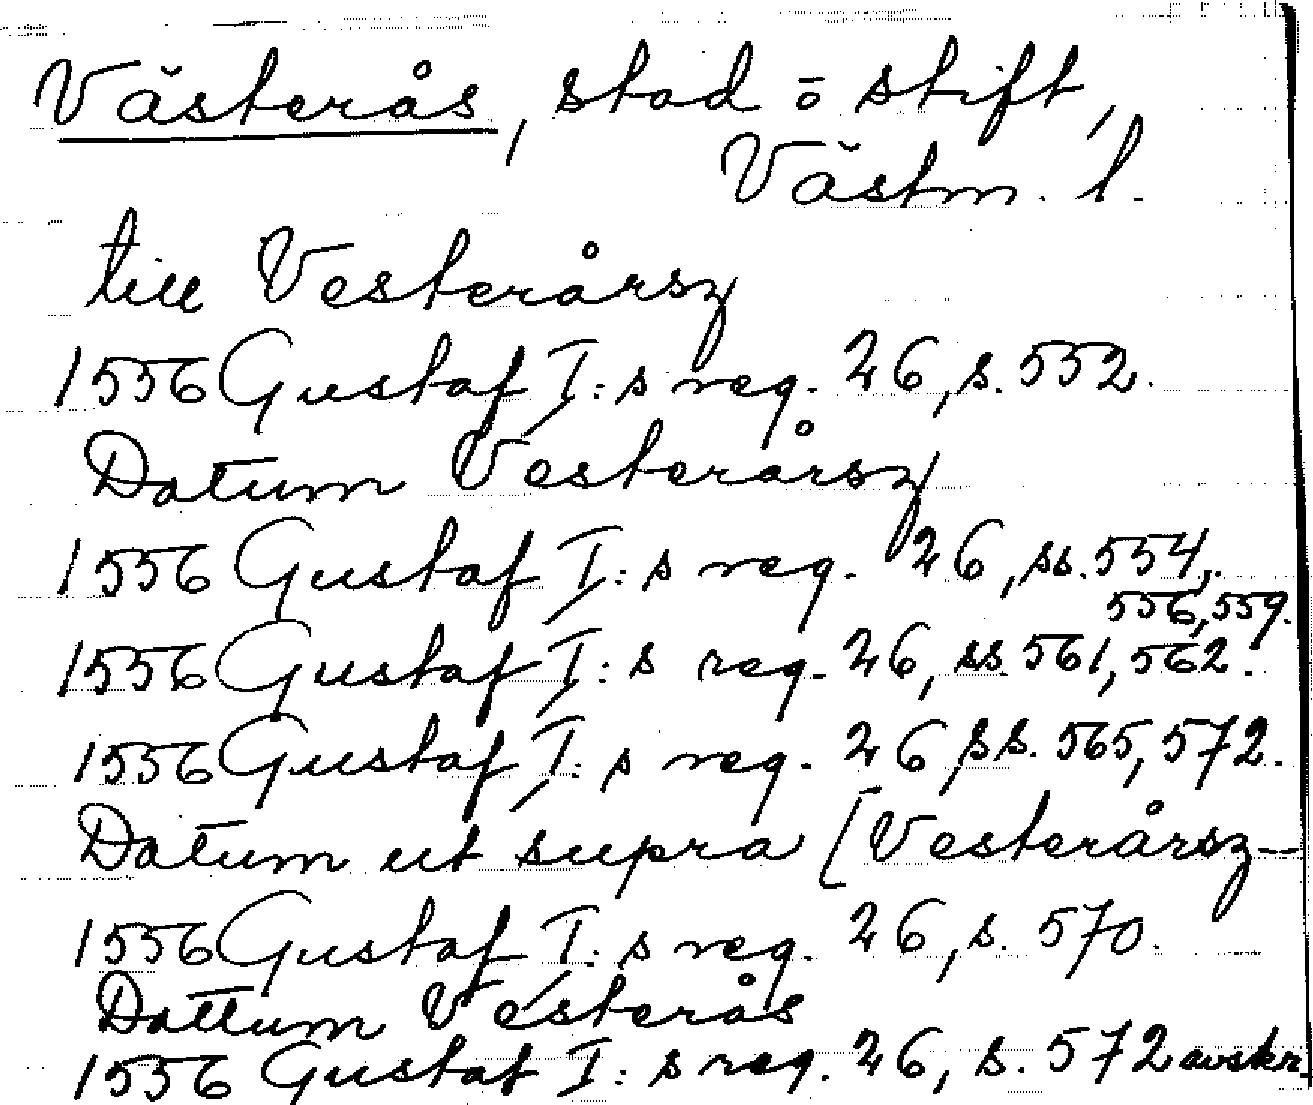 Västerås, stad o stift,
Västm. l.
till Vesterårsz
1556 Gustaf I:s reg. 26, s. 552.
Datum Vesterårsz
1556 Gustaf I:s reg. 26, ss. 554,
556, 559.
1556 Gustaf I:s reg. 26, ss. 561, 562.
1556 Gustaf I:s reg. 26, ss. 565, 572.
Datum ut supra [Vesterårsz—
1556 Gustaf I:s reg. 26, s. 570.
Dattum Vesterås
1556 Gustaf I:s reg. 26, s. 572 avskr.